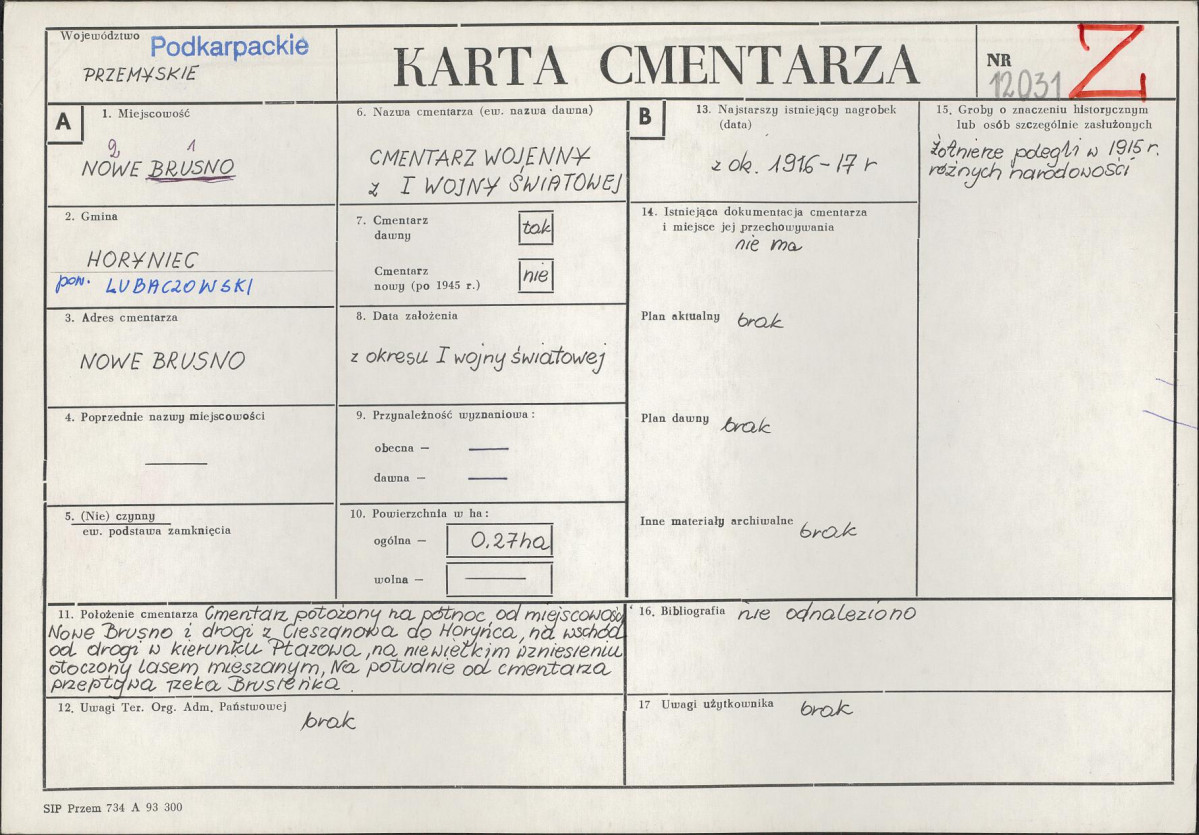 Województwo Podkarpackie
PRZEMYSKIE
KARTA CMENTARZA
NR
12031
Z
A
1. Miejscowość
2 1
NOWE BRUSNO
2. Gmina
HORYNIEC
pow. LUBACZOWSKI
3. Adres cmentarza
NOWE BRUSNO
4. Poprzednie nazwy miejscowości
—
5. (Nie) czynny
ew. podstawa zamknięcia
6. Nazwa cmentarza (ew. nazwa dawna)
CMENTARZ WOJENNY
z I WOJNY ŚWIATOWEJ
7. Cmentarz
dawny
tak
Cmentarz
nowy (po 1945 r.)
nie
8. Data założenia
z okresu I wojny światowej
9. Przynależność wyznaniowa :
obecna — —
dawna — —
10. Powierzchnia w ha :
ogólna — 0.27ha
wolna — —
11. Położenie cmentarza Cmentarz położony na północ od miejscowości
Nowe Brusno i drogi z Cieszanowa do Horyńca, na wschód
od drogi w kierunku Płazowa, na niewielkim wzniesieniu
otoczony lasem mieszanym, Na południe od cmentarza
przepływa rzeka Brusienka.
12. Uwagi Ter. Org. Adm. Państwowej
brak
B
13. Najstarszy istniejący nagrobek
(data)
z ok. 1916-17 r
14. Istniejąca dokumentacja cmentarza
i miejsce jej przechowywania
nie ma
Plan aktualny brak
Plan dawny brak
Inne materiały archiwalne brak
15. Groby o znaczeniu historycznym
lub osób szczególnie zasłużonych
Żołnierze polegli w 1915 r.
różnych narodowości
16. Bibliografia nie odnaleziono
17 Uwagi użytkownika brak
SIP Przem 734 A 93 300